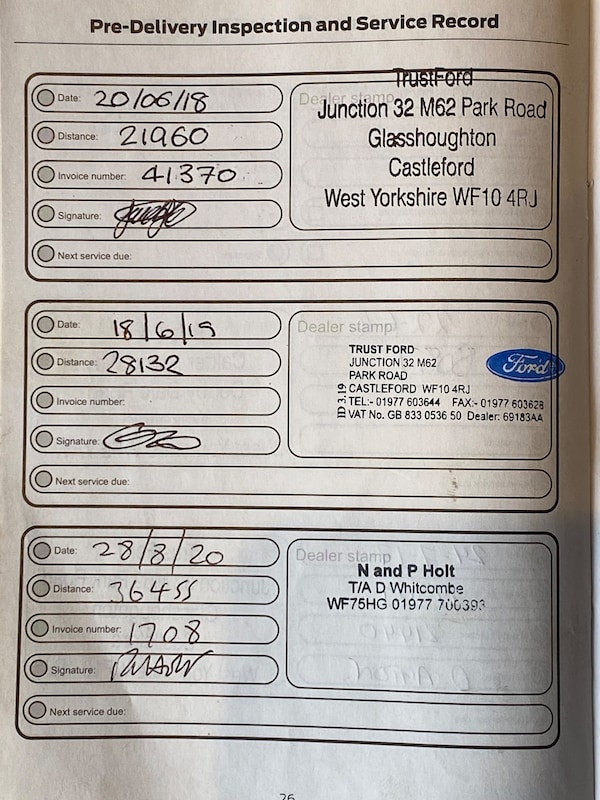 Pre-Delivery Inspection and Service Record
Date: 20/06/18
Distance: 21960
Invoice number: 41370
Signature:
Next service due:
Dealer stamp
TrustFord
Junction 32 M62 Park Road
Glasshoughton
Castleford
West Yorkshire WF10 4RJ
Date: 18/6/19
Distance: 28132
Invoice number:
Signature:
Next service due:
Dealer stamp
TRUST FORD
JUNCTION 32 M62
PARK ROAD
CASTLEFORD WF10 4RJ
TEL:- 01977 603644 FAX:- 01977 603628
VAT No. GB 833 0536 50 Dealer: 69183AA
ID 3.119
Ford
Date: 28/8/20
Distance: 36455
Invoice number: 1708
Signature:
Next service due:
Dealer stamp
N and P Holt
T/A D Whitcombe
WF75HG 01977 700393